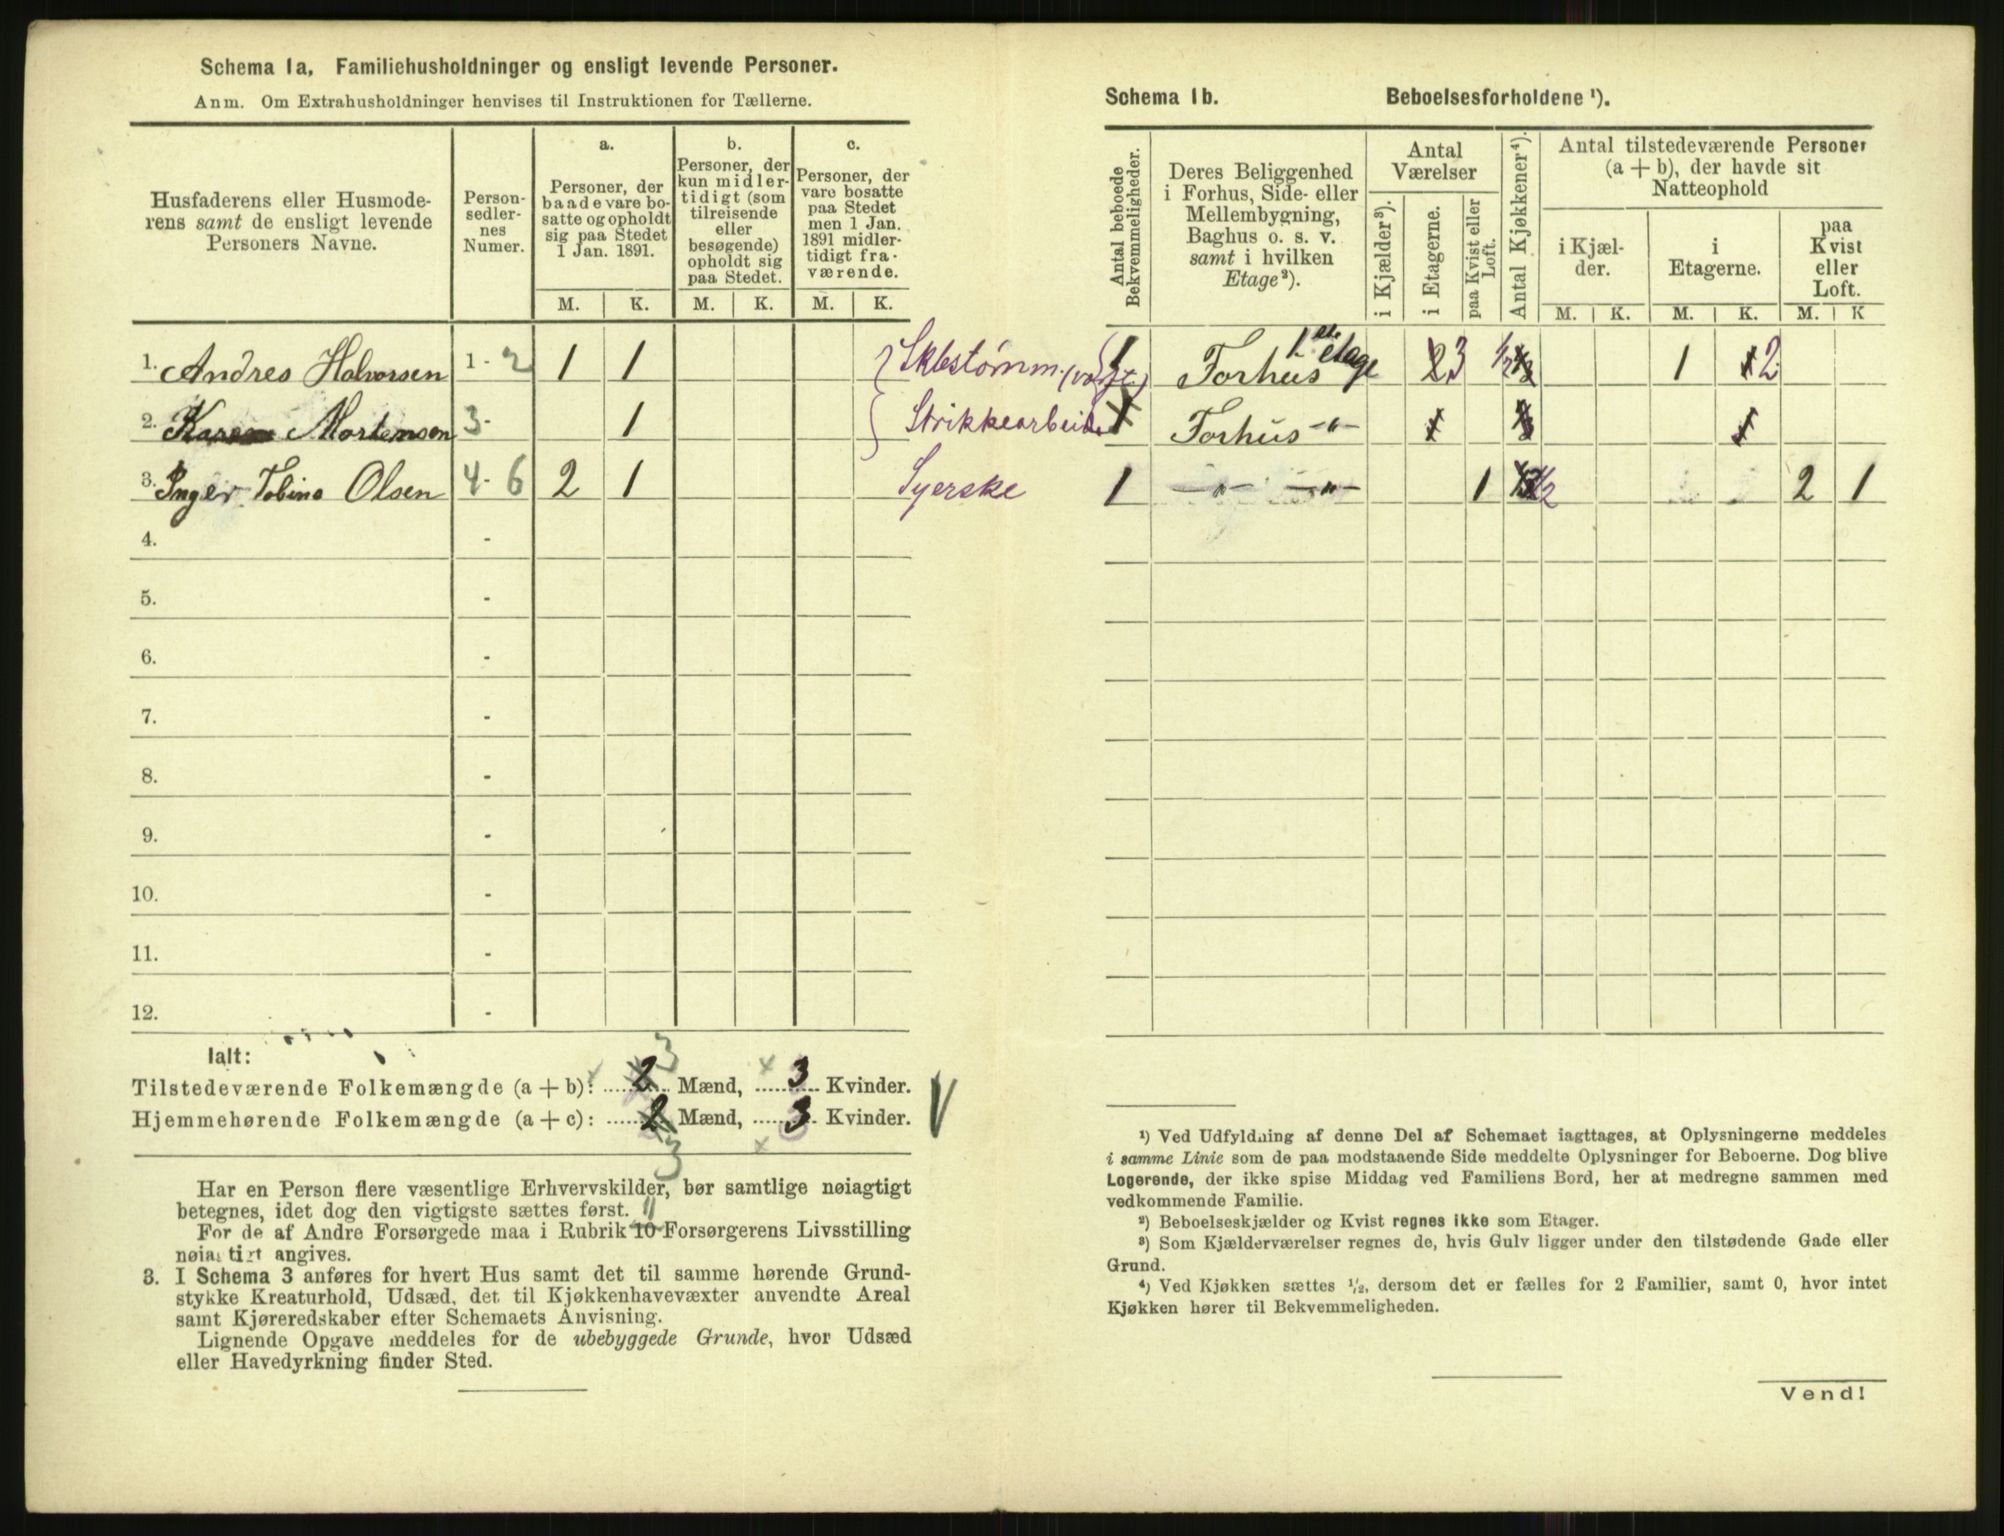 Schema 1a, Familiehusholdninger og ensligt levende Personer.
Anm. Om Extrahusholdninger henvises til Instruktionen for Tællerne.
Husfaderens eller Husmoderens samt de ensligt levende Personers Navne.
Personsedlernes Numer.
a.
Personer, der baade vare bosatte og opholdt sig paa Stedet 1 Jan. 1891.
b.
Personer, der kun midlertidigt (som tilreisende eller besøgende) opholdt sig paa Stedet.
c.
Personer, der vare bosatte paa Stedet men 1 Jan. 1891 midlertidigt fraværende.
M. K. M. K. M. K.
1. Andres Halvorsen 1 - 2 1 1 Skbstømm.
2. Karen Mortensen 3 - 1 Strikkearbeide
3. Inger Tobine Olsen 4 - 6 2 1 Syerske
4. -
5. -
6. -
7. -
8. -
9. -
10. -
11. -
12. -
Ialt:
Tilstedeværende Folkemængde (a + b): 2 3 Mænd, 3 Kvinder.
Hjemmehørende Folkemængde (a + c): 2 3 Mænd, 3 Kvinder.
Har en Person flere væsentlige Erhvervskilder, bør samtlige nøiagtigt
betegnes, idet dog den vigtigste sættes først.
For de af Andre Forsørgede maa i Rubrik 10 11 Forsørgerens Livsstilling
nøiagtigt angives.
3. I Schema 3 anføres for hvert Hus samt det til samme hørende Grund-
stykke Kreaturhold, Udsæd, det til Kjøkkenhavevæxter anvendte Areal
samt Kjøreredskaber efter Schemaets Anvisning.
Lignende Opgave meddeles for de ubebyggede Grunde, hvor Udsæd
eller Havedyrkning finder Sted.
Schema 1b. Beboelsesforholdene ¹).
Antal beboede Bekvemmeligheder.
Deres Beliggenhed i Forhus, Side- eller Mellembygning, Baghus o. s. v. samt i hvilken Etage²).
Antal Værelser
i Kjælder³).
i Etagerne.
paa Kvist eller Loft.
Antal Kjøkkener⁴).
Antal tilstedeværende Personer (a + b), der havde sit Natteophold
i Kjælder.
i Etagerne.
paa Kvist eller Loft.
M. K. M. K. M. K
1 Forhus 1ste etage 2 3 1/2 1 1 2
1 Forhus -"- 1 1
1 -"- -"- 1 1/2 2 1
¹) Ved Udfyldning af denne Del af Schemaet iagttages, at Oplysningerne meddeles
i samme Linie som de paa modstaaende Side meddelte Oplysninger for Beboerne. Dog blive
Logerende, der ikke spise Middag ved Familiens Bord, her at medregne sammen med
vedkommende Familie.
²) Beboelseskjælder og Kvist regnes ikke som Etager.
³) Som Kjælderværelser regnes de, hvis Gulv ligger under den tilstødende Gade eller
Grund.
⁴) Ved Kjøkken sættes ½, dersom det er fælles for 2 Familier, samt 0, hvor intet
Kjøkken hører til Bekvemmeligheden.
Vend!